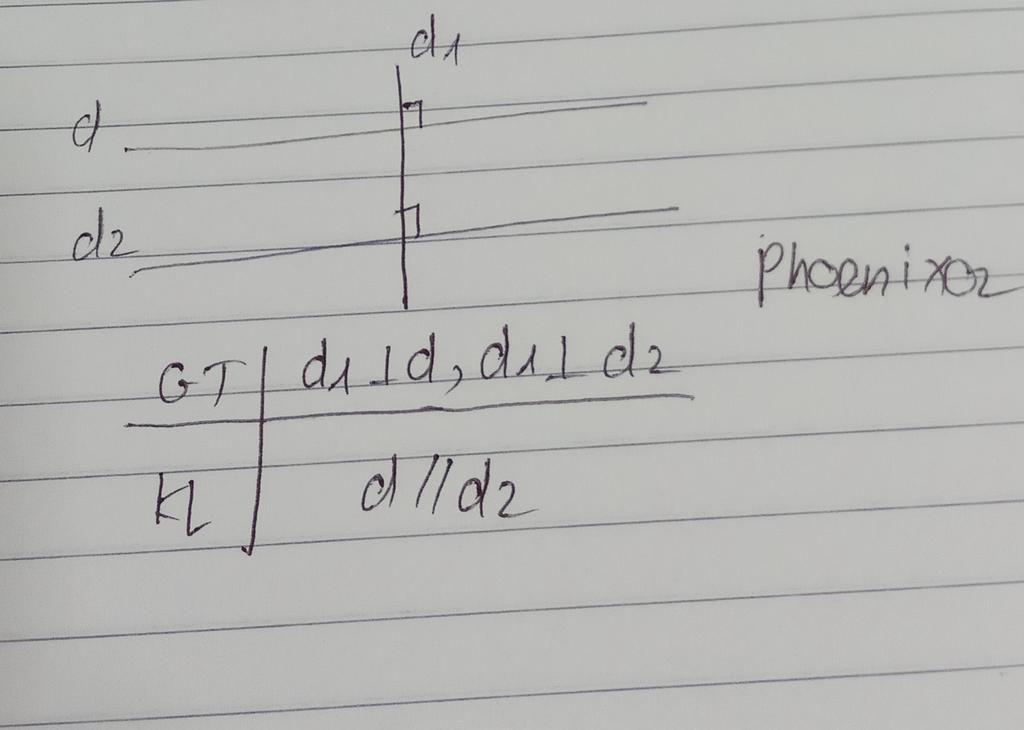 d1
d
d2
Phoenixoz
GT d1 ⊥ d, d1 ⊥ d2
KL d // d2